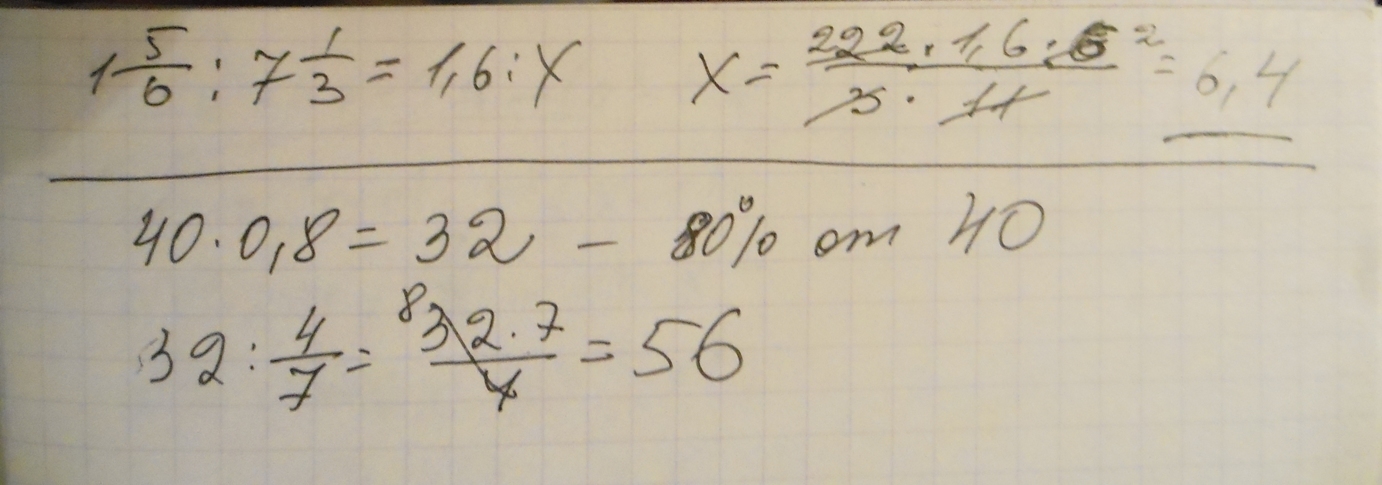 1 5/6 : 7 1/3 = 1,6 : X X = 222 · 1,6 · 6 2 / 3 · 11 = 6,4
40 · 0,8 = 32 - 80% от 40
32 : 4/7 = 8 32 · 7 / 4 = 56